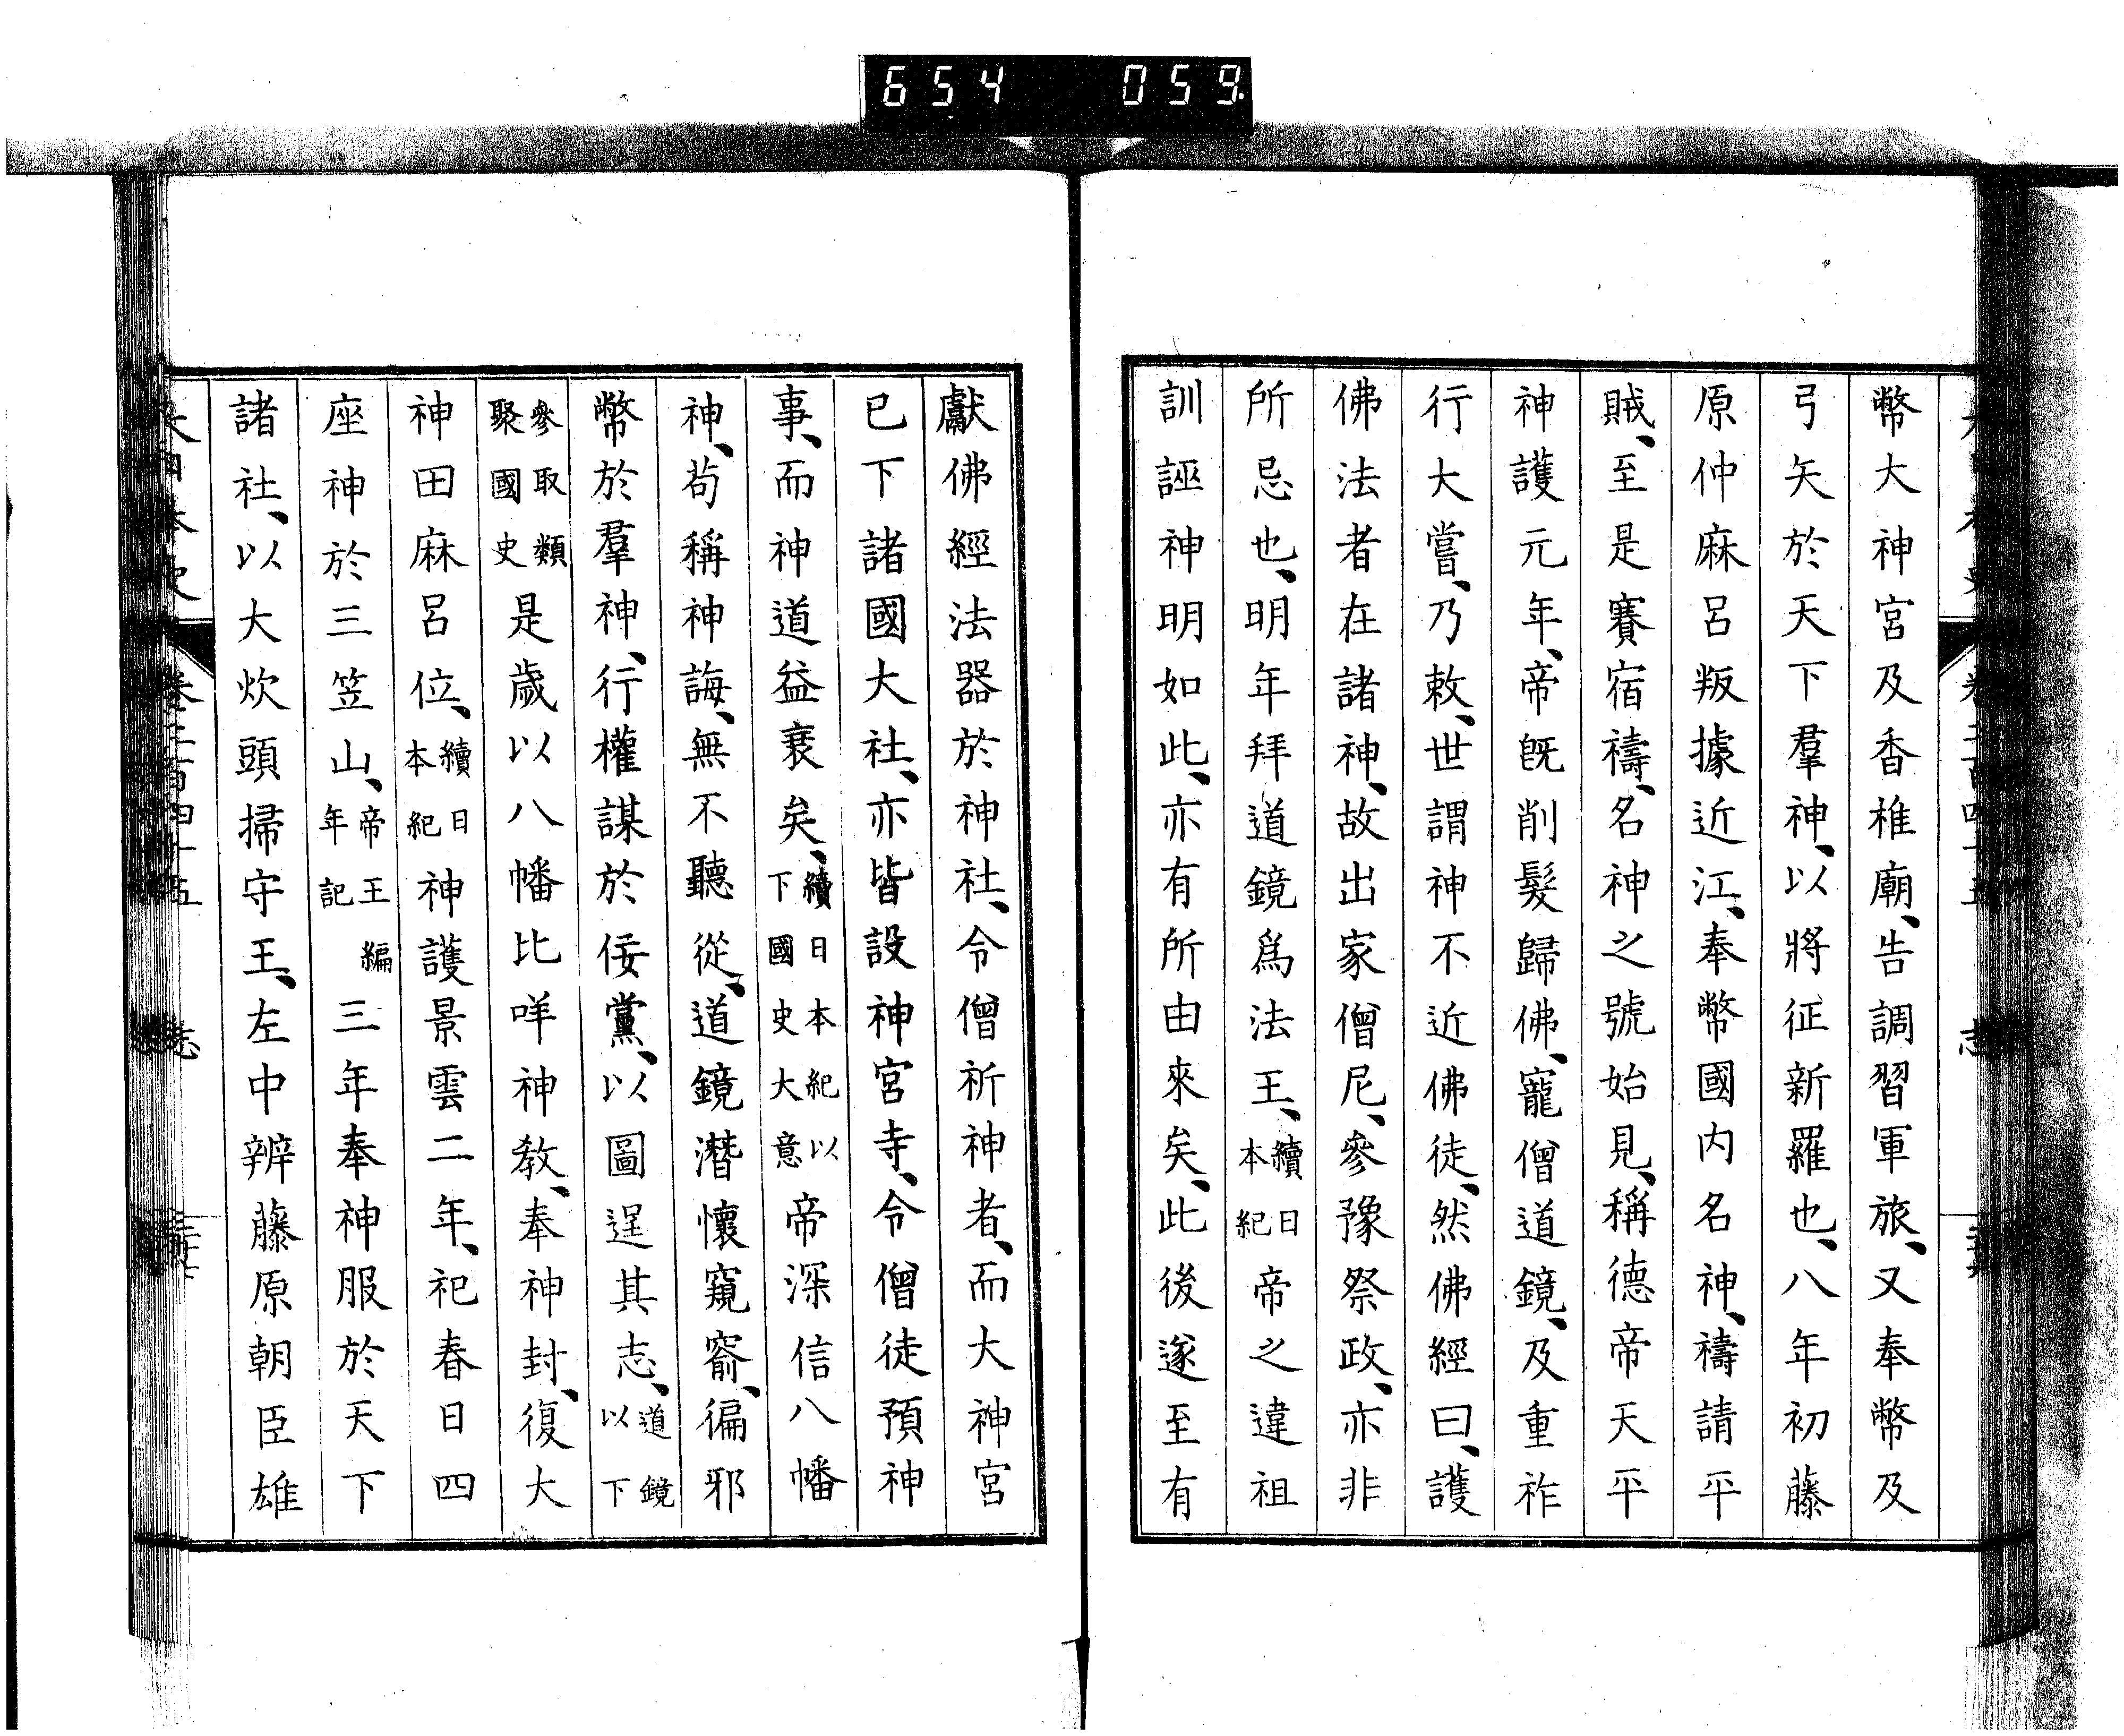 654 059
幣大神宮及香椎廟、告調習軍旅、又奉幣及
弓矢於天下羣神、以將征新羅也、八年初藤
原仲麻呂叛據近江、奉幣國内名神、禱請平
賊、至是賽宿禱、名神之號始見、稱德帝天平
神護元年、帝旣削髮歸佛、寵僧道鏡、及重祚
行大嘗、乃敕、世謂神不近佛徒、然佛經曰、護
佛法者在諸神、故出家僧尼、參豫祭政、亦非
所忌也、明年拜道鏡爲法王、續日本紀帝之違祖
訓誣神明如此、亦有所由來矣、此後遂至有
獻佛經法器於神社、令僧祈神者、而大神宮
已下諸國大社、亦皆設神宮寺、令僧徒預神
事、而神道益衰矣、續日本紀以下國史大意帝深信八幡
神、苟稱神誨、無不聽從、道鏡潛懷窺窬、徧邪
幣於羣神、行權謀於佞黨、以圖逞其志、道鏡以下
參取類聚國史是歲以八幡比咩神教、奉神封、復大
神田麻呂位、續日本紀神護景雲二年、祀春日四
座神於三笠山、帝王編年記三年奉神服於天下
諸社、以大炊頭掃守王、左中辨藤原朝臣雄
大日本史 卷二百四十五 志